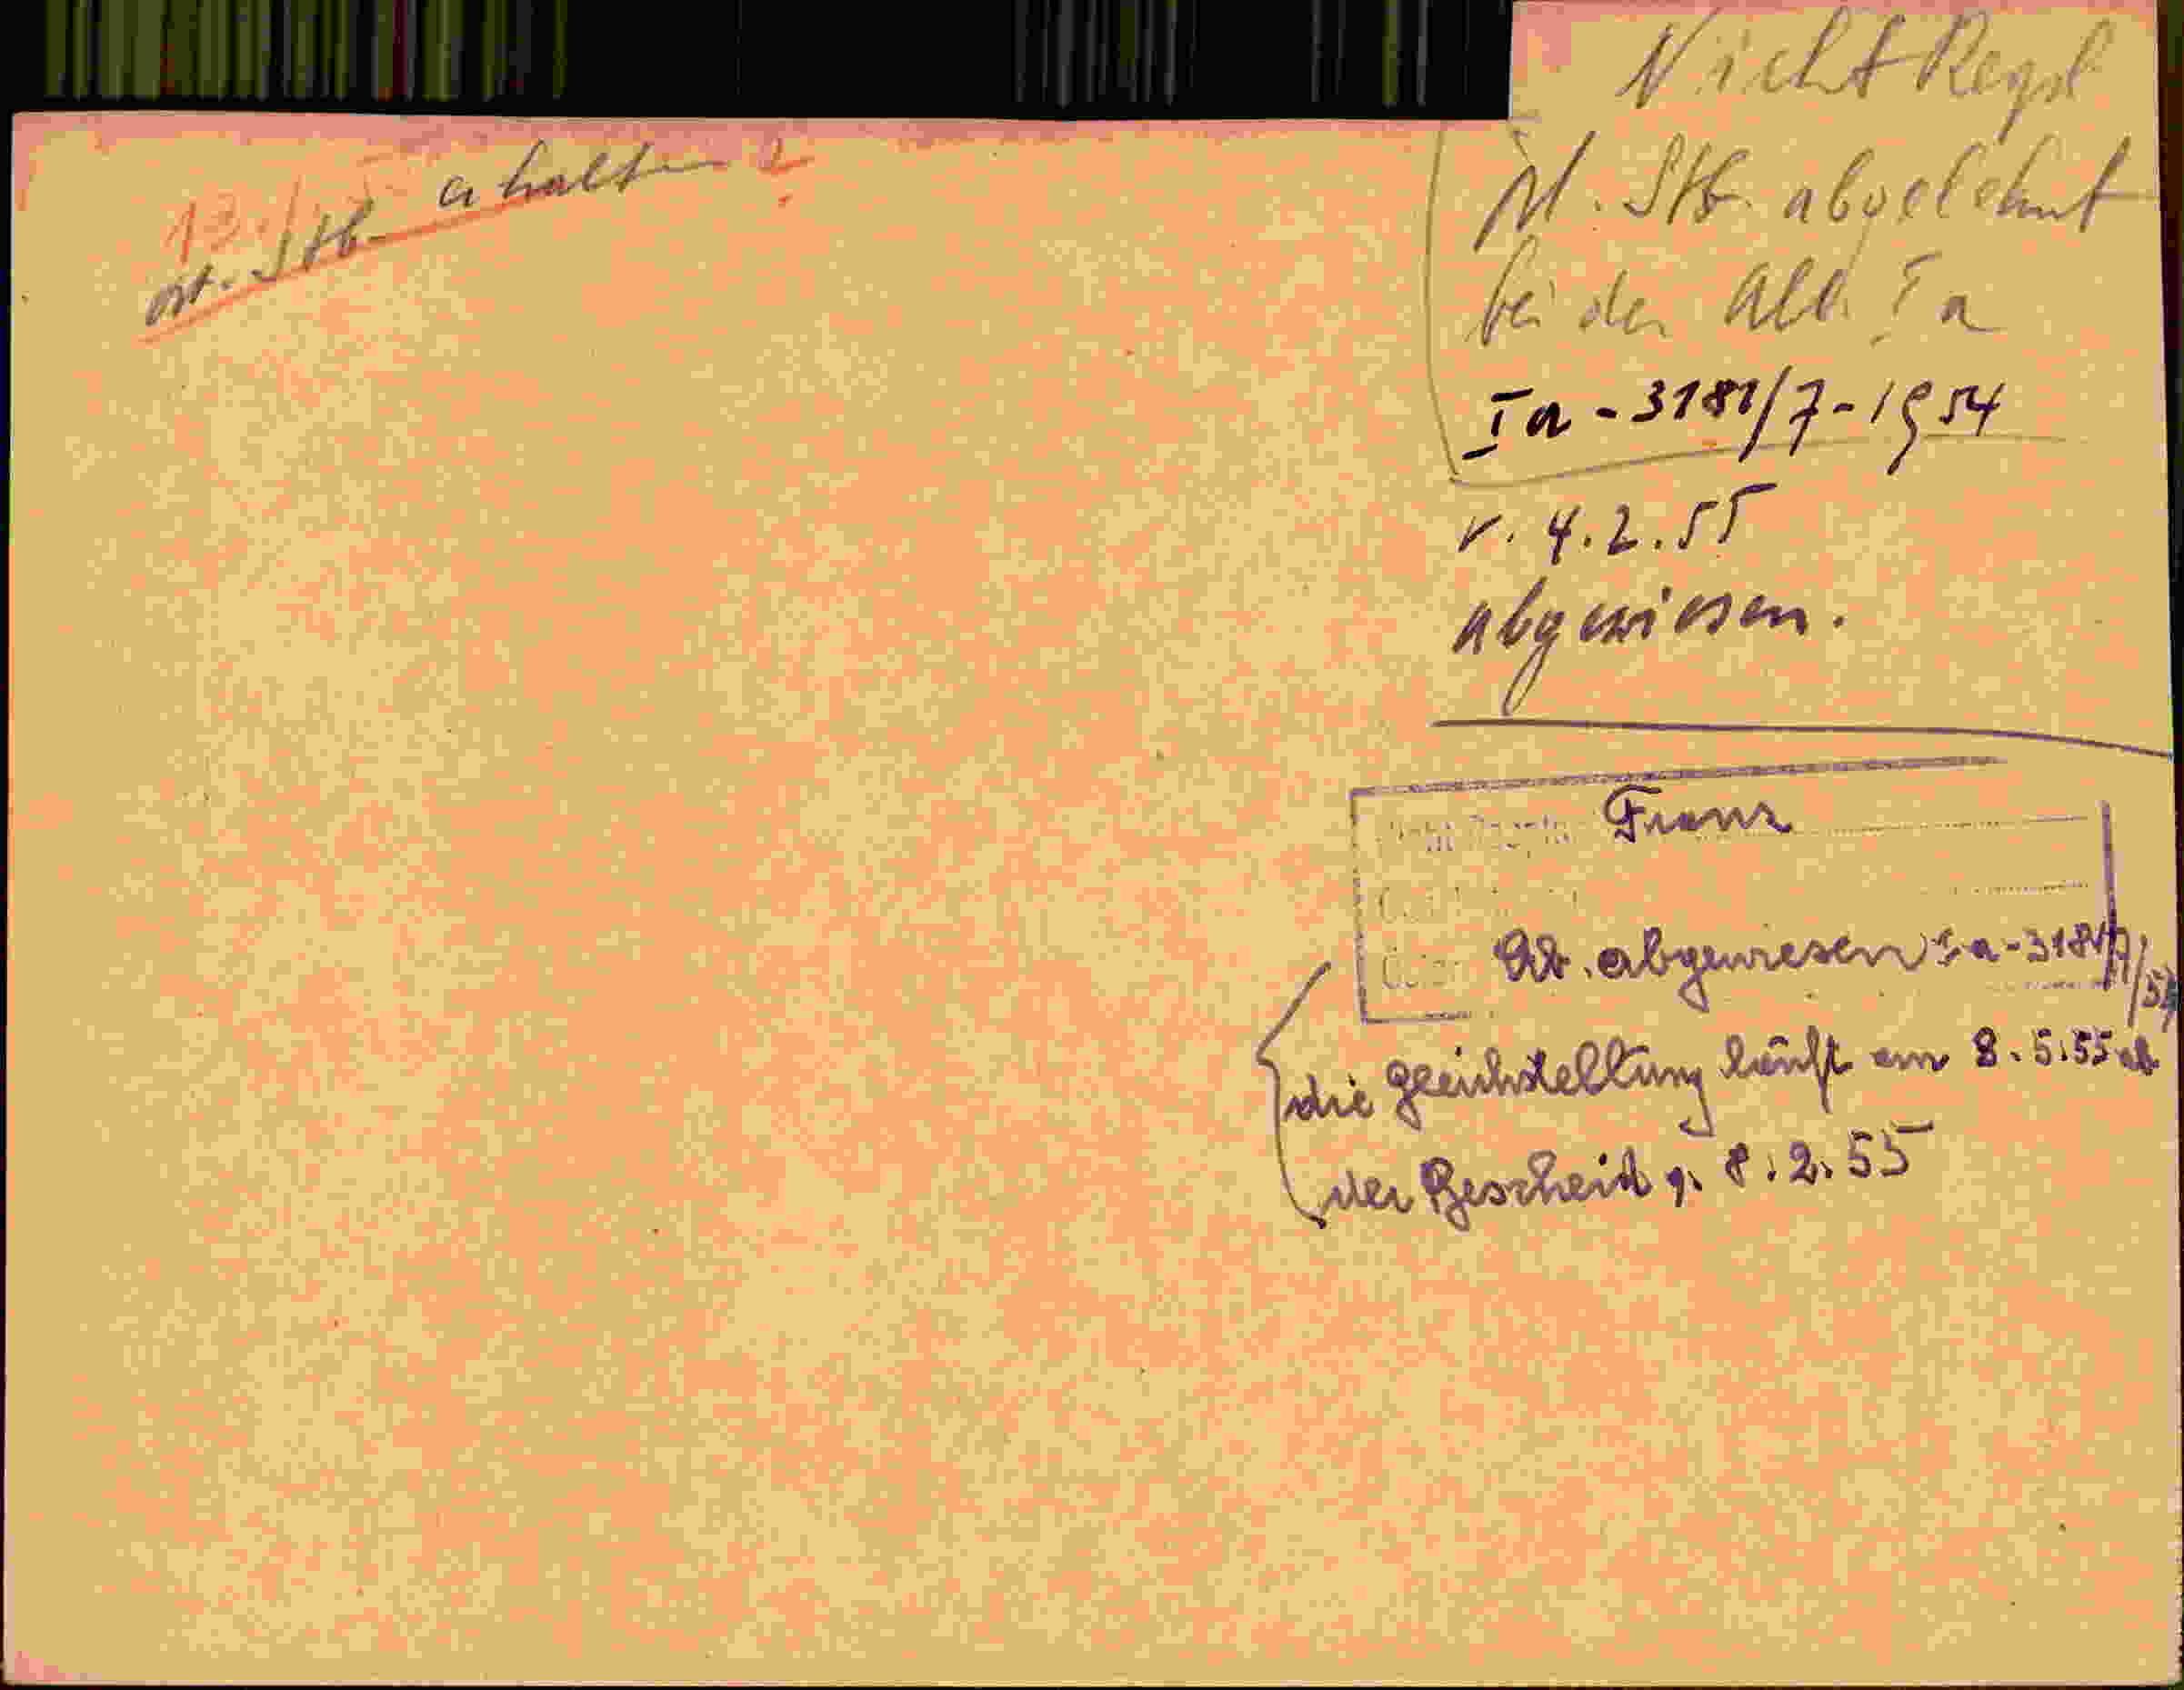 13./
öst. Stb. erhalten?
Nicht Regst
öst. Stb. abgelehnt
bei der Abt. I a
I a - 3181/7 - 1954
v. 4.2.55
abgewiesen.
Franz
Ab. abgewiesen I a - 3181/7/54
die Geeichstellung läuft am 8.5.55 ab
der Bescheid v. 8.2.55